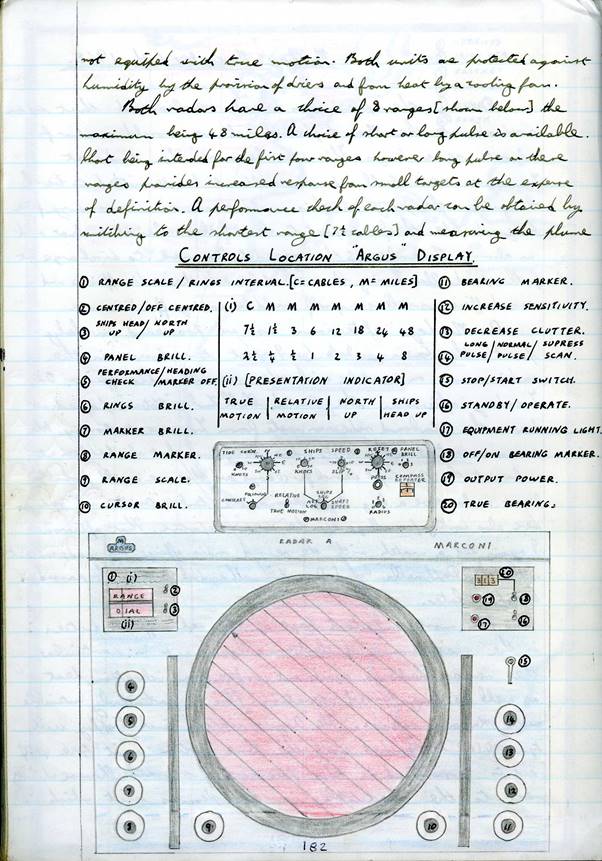 not equiped with true motion. Both units are protected against
humidity by the provision of driers and from heat by a cooling fan.
Both radars have a choice of 8 ranges [shown below] the
maximum being 48 miles. A choice of short or long pulse is available.
Short being intended for the first four ranges however long pulse on these
ranges provides increased response from small targets at the expense
of definition. A performance check of each radar can be obtained by
switching to the shortest range [7½ cables] and measuring the plume
CONTROLS LOCATION "ARGUS" DISPLAY.
① RANGE SCALE / RINGS INTERVAL. [C = CABLES, M = MILES]
② CENTRED / OFF CENTRED.
③ SHIPS HEAD UP / NORTH UP
④ PANEL BRILL.
⑤ PERFORMANCE CHECK / HEADING MARKER OFF.
⑥ RINGS BRILL.
⑦ MARKER BRILL.
⑧ RANGE MARKER.
⑨ RANGE SCALE.
⑩ CURSOR BRILL.
(i) C M M M M M M M
7½ 1½ 3 6 12 18 24 48
2½ ¼ ½ 1 2 3 4 8
(ii) [PRESENTATION INDICATOR]
TRUE MOTION | RELATIVE MOTION | NORTH UP | SHIPS HEAD UP
⑪ BEARING MARKER.
⑫ INCREASE SENSITIVITY.
⑬ DECREASE CLUTTER.
⑭ LONG PULSE / NORMAL PULSE / SUPRESS SCAN.
⑮ STOP/START SWITCH.
⑯ STANDBY / OPERATE.
⑰ EQUIPMENT RUNNING LIGHT
⑱ OFF/ON BEARING MARKER.
⑲ OUTPUT POWER.
⑳ TRUE BEARING.
TIDE
SHIPS SPEED
RESET
PANEL BRILL
KNOTS
KNOTS
SLIP
PRESS
COMPASS REPEATER
CONTRAST
RELATIVE
TRUE MOTION
SHIPS LOG
SPEED
RADIUS
MARCONI
M
ARGUS
RADAR A
MARCONI
① (i)
RANGE
DIAL
(ii)
②
③
⑳
313
⑲
⑱
⑰
⑯
⑮
④
⑤
⑥
⑦
⑧
⑨
⑩
⑭
⑬
⑫
⑪
182